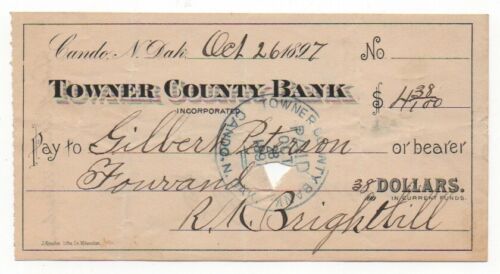 Cando, N. Dak, Oct 26 1897 No
TOWNER COUNTY BANK
INCORPORATED $ 4 38/100
Pay to Gilbert Peterson or bearer
Four and 38 DOLLARS.
IN CURRENT FUNDS.
R M Brighthill
TOWNER COUNTY BANK
PAID
OCT
CANDO, N. DAK.